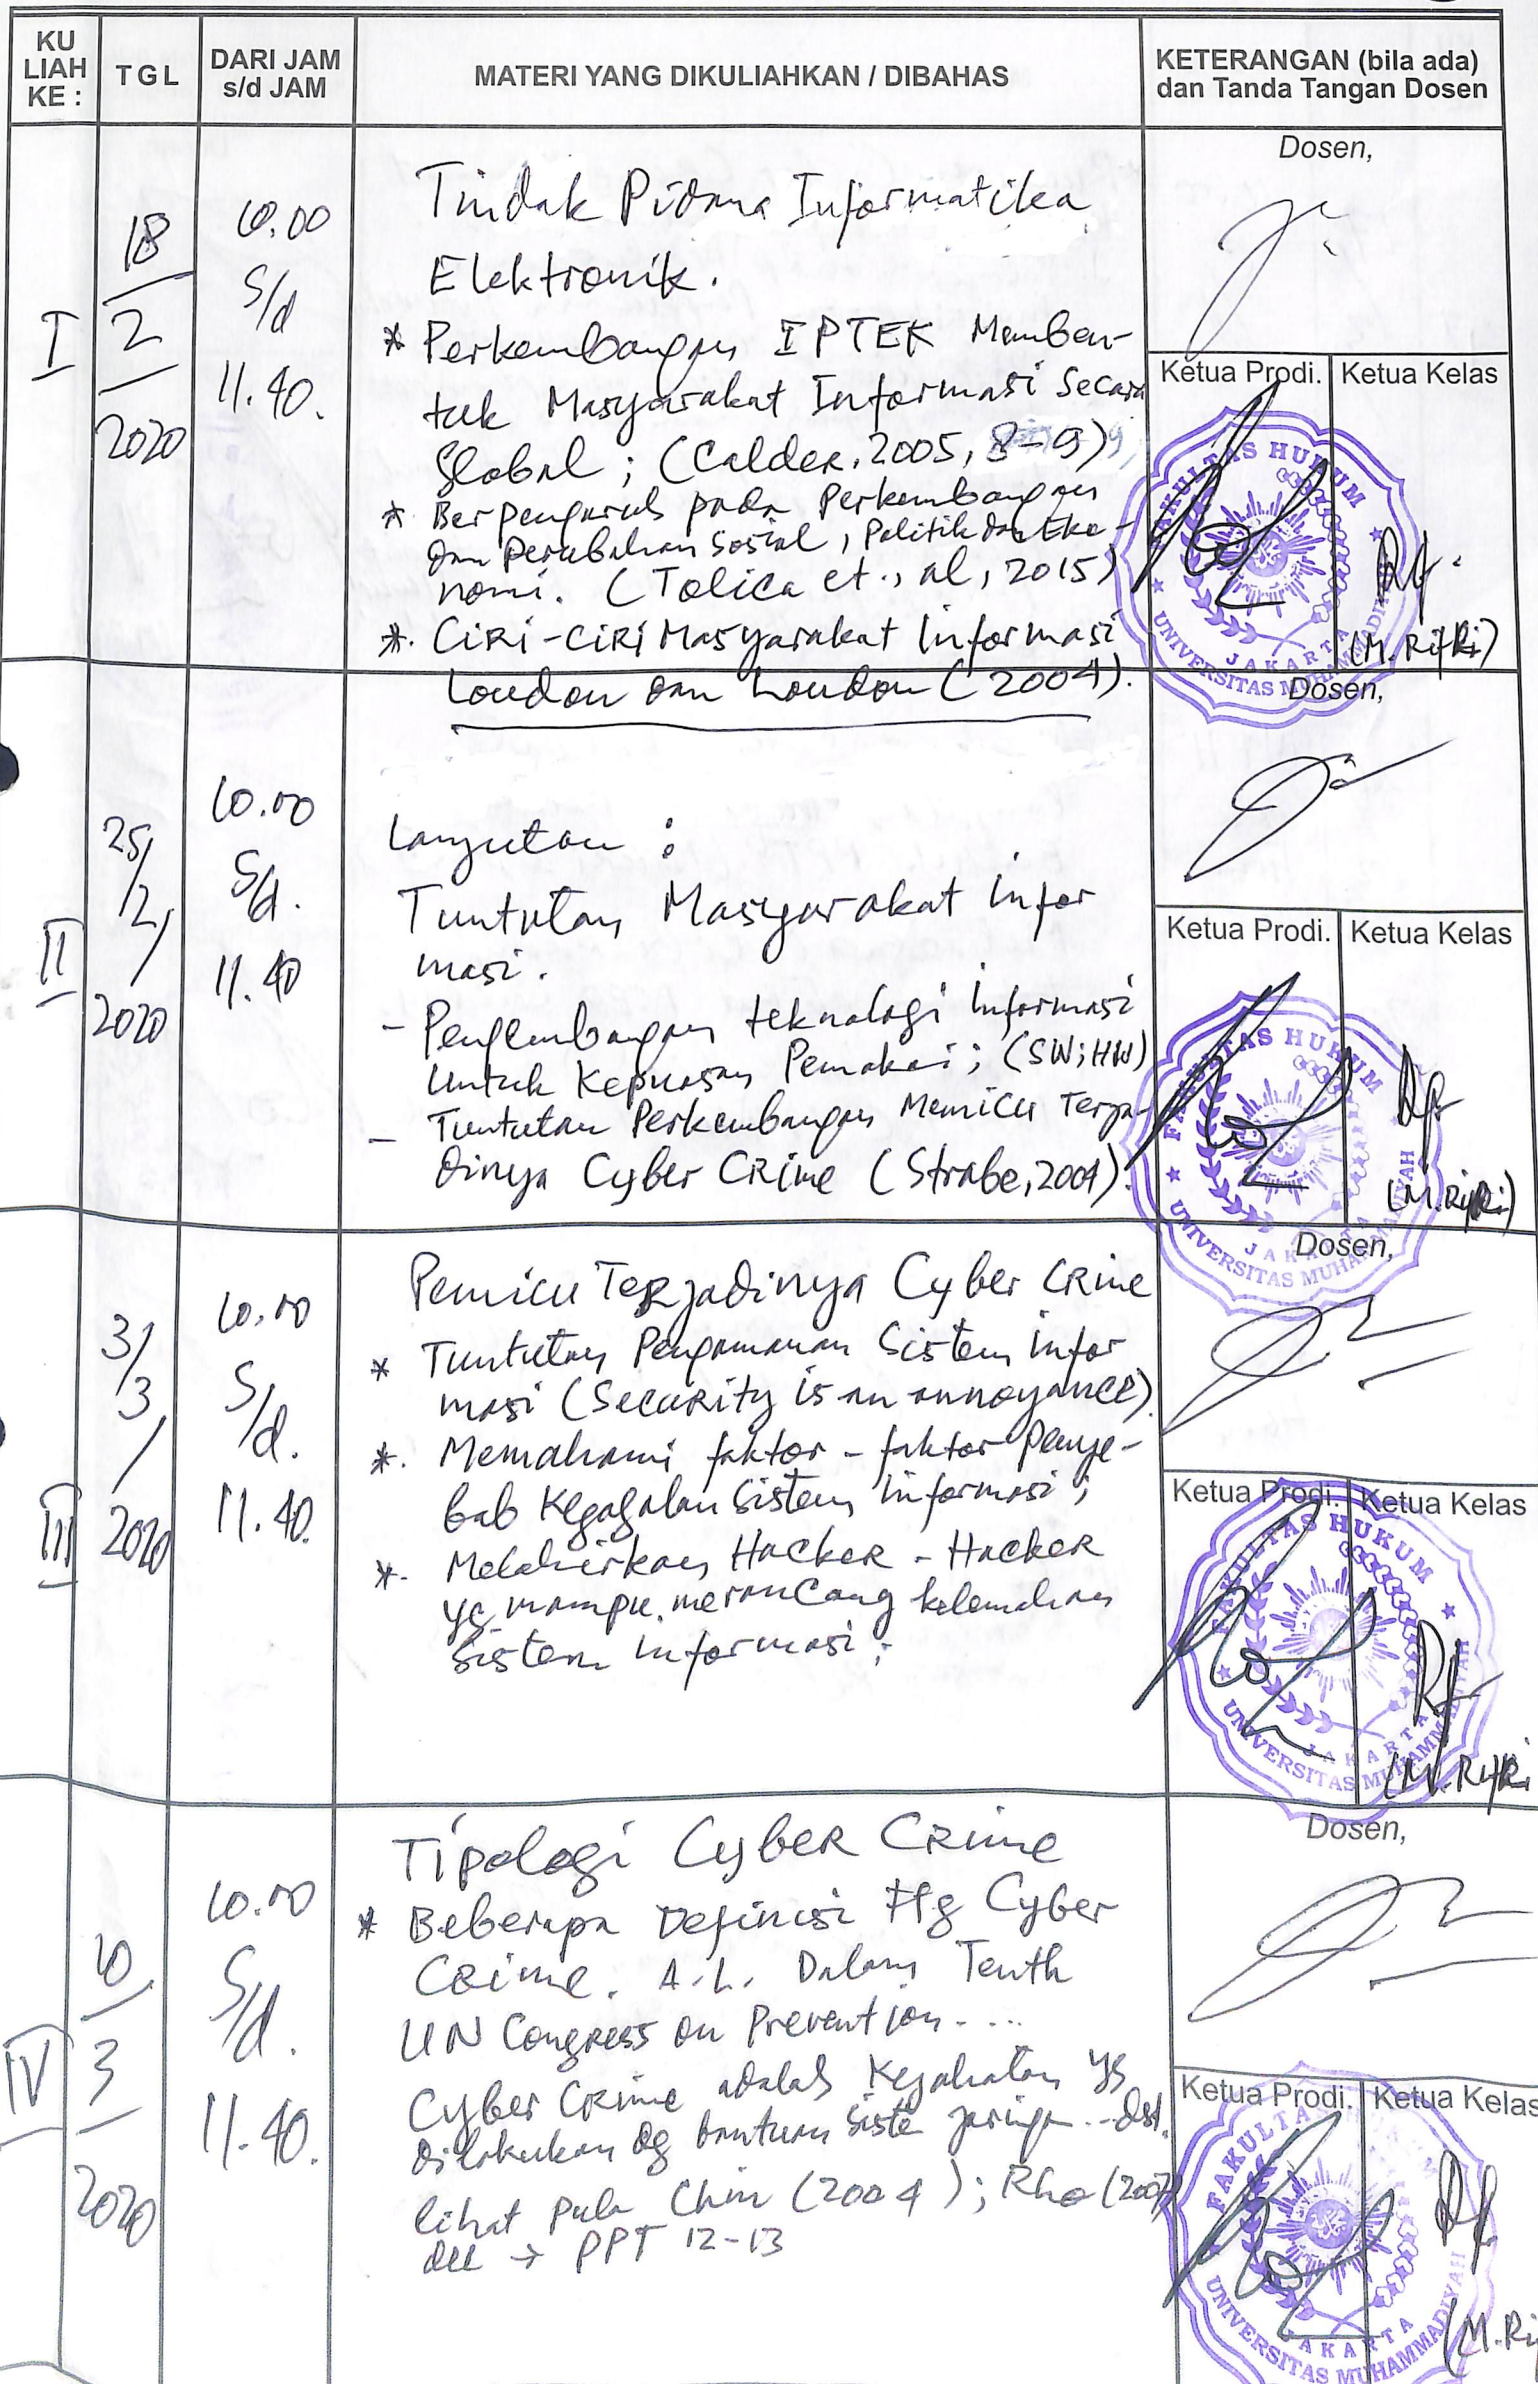 KU LIAH KE :
TGL
DARI JAM s/d JAM
MATERI YANG DIKULIAHKAN / DIBAHAS
KETERANGAN (bila ada) dan Tanda Tangan Dosen
I
18
2
2020
10.00
S/d
11.40.
Tindak Pidana Informatika
Elektronik.
* Perkembangan IPTEK Memben-
tuk Masyarakat Informasi Secara
Global ; (Calder, 2005, 8-9)
* Berpengaruh pada Perkembangan
dan Perubahan Sosial, Politik dan Eko-
nomi. (Tolica et., al, 2015)
*. CIRI-CIRI Masyarakat Informasi
Loudon dan Loudon (2004).
Dosen,
Ketua Prodi.
Ketua Kelas
FAKULTAS HUKUM
UNIVERSITAS MUHAMMADIYAH
JAKARTA
(M. Rifki)
II
25/
2/
2020
10.00
S/d.
11.40
Lanjutan :
Tuntutan Masyarakat Infor
masi.
- Pengembangan teknologi Informasi
Untuk Kepuasan Pemakai ; (SW; HW)
- Tuntutan Perkembangan Memicu Terja-
dinya Cyber Crime (Strabe, 2004).
Dosen,
Ketua Prodi.
Ketua Kelas
FAKULTAS HUKUM
UNIVERSITAS MUHAMMADIYAH
JAKARTA
(M. Rifki)
III
3/
3/
2020
10.00
S/d.
11.40.
Pemicu Terjadinya Cyber Crime
* Tuntutan Pengamanan Sistem Infor
masi (Security is an annoyance)
*. Memahami faktor - faktor Penye-
bab Kegagalan Sistem Informasi ;
*. Melahirkan Hacker - Hacker
yg mampu merancang kelemahan
Sistem Informasi ;
Dosen,
Ketua Prodi.
Ketua Kelas
FAKULTAS HUKUM
UNIVERSITAS MUHAMMADIYAH
JAKARTA
(M. Rifki
IV
10
3
2020
10.00
S/d.
11.40.
Tipologi Cyber Crime
* Beberapa Definisi ttg Cyber
Crime. A.L. Dalam Tenth
UN Congress on Prevention ....
Cyber Crime adalah Kejahatan yg
dilakukan dg bantuan Siste jaringa.. dst.
lihat pula Chin (2004) ; Rho (2007)
dll → PPT 12-13
Dosen,
Ketua Prodi.
Ketua Kelas
FAKULTAS
UNIVERSITAS MUHAMMADIYAH
JAKARTA
(M. Ri